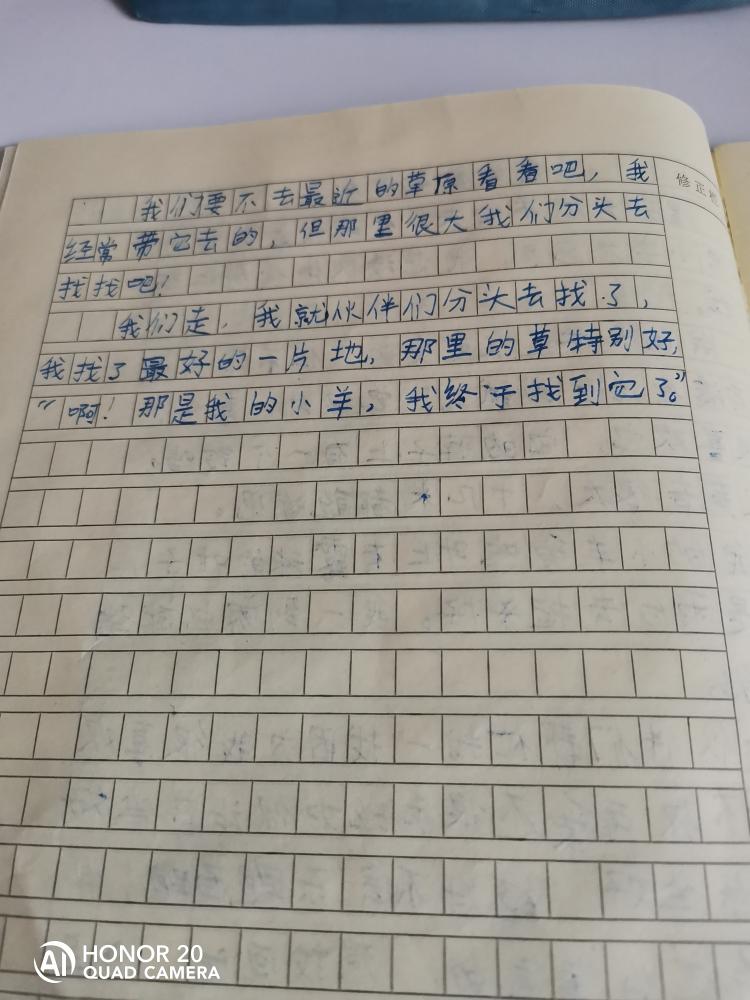 我们要不去最近的草原看看吧，我
修正
经常带它去的，但那里很大我们分头去
找找吧！
我们走，我就伙伴们分头去找了，
我找了最好的一片地，那里的草特别好，
“啊！那是我的小羊，我终于找到它了。”
HONOR 20
QUAD CAMERA